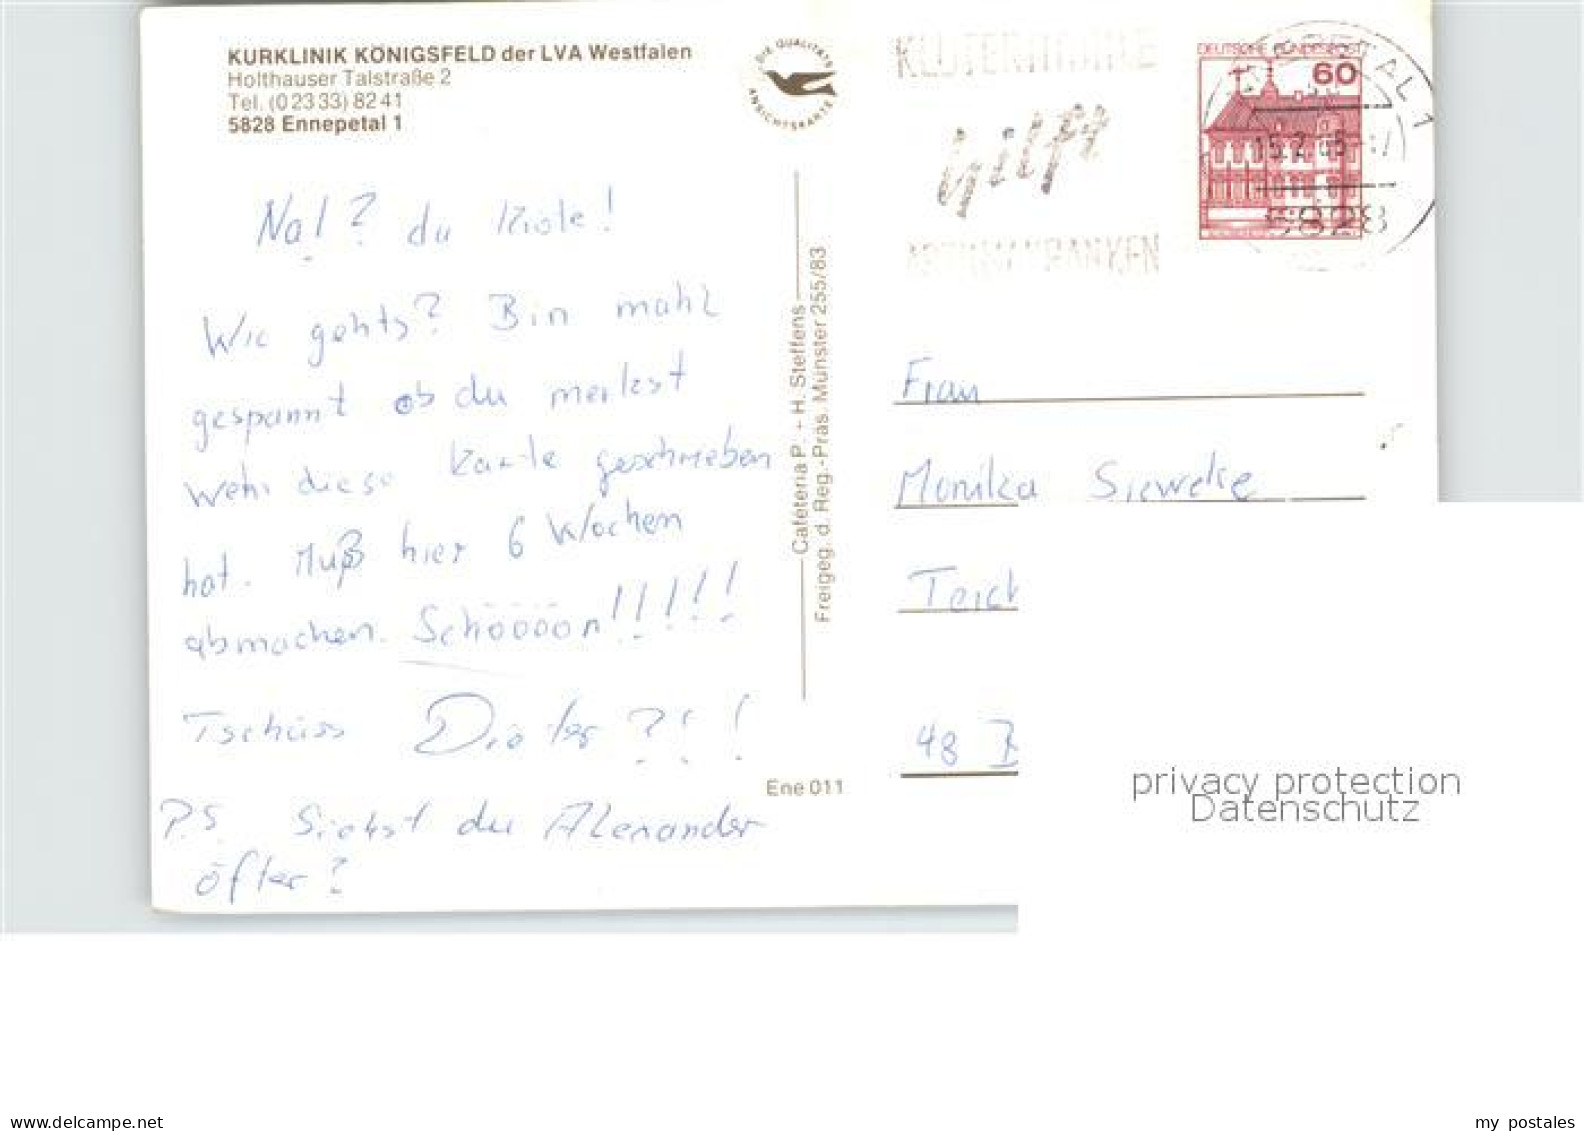 KURKLINIK KÖNIGSFELD der LVA Westfalen
Holthauser Talstraße 2
Tel. (0 23 33) 82 41
5828 Ennepetal 1
DIE QUALITÄTS
ANSICHTSKARTE
KLUTERTHÖHLE
hilft
ASTHMAKRANKEN
DEUTSCHE BUNDESPOST
60
5828
Na!? du Kröte!
Wie gehts? Bin mahl
gespannt ob du merkst
wehr diese Karte geschrieben
hat. Muß hier 6 Wochen
abmachen. Schööööön!!!!!
Tschüss Dieter ?!!
P.S. Siehst du Alexander
öfter?
Cafeteria P. + H. Steffens
Freigeg. d. Reg.-Präs. Münster 255/83
Ene 011
Frau
Monika Sieweke
Teich
48 B
privacy protection
Datenschutz
www.delcampe.net
my_postales